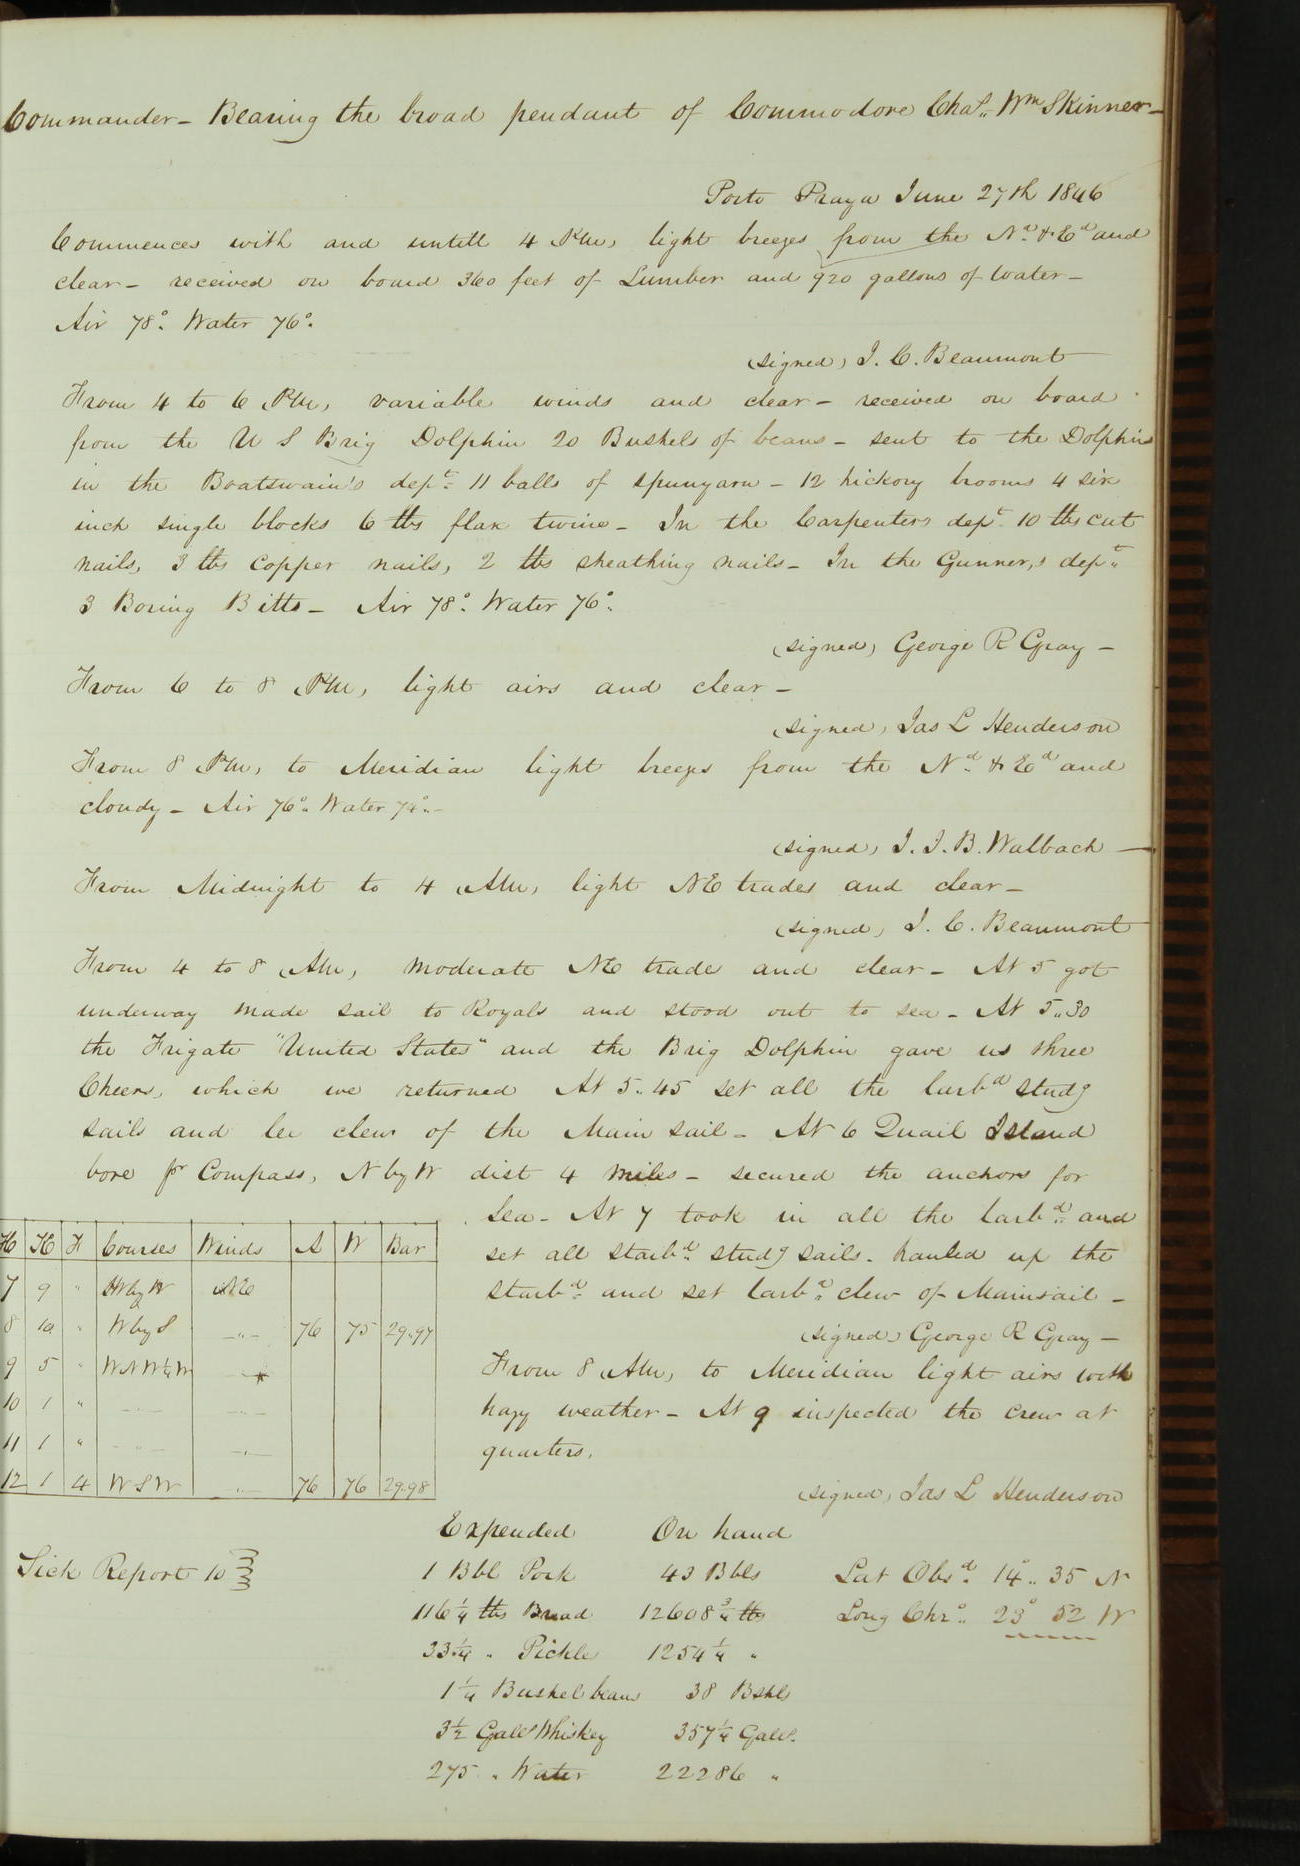 Commander - Bearing the broad pendant of Commodore Chas. Wm Skinner -
Porto Praya June 27th 1846
Commences with and untill 4 P.M, light breezes from the Nd. & Ed and
clear - received on board 360 feet of Lumber and 920 gallons of water -
Air 78°. Water 76°.
(signed) J. C. Beaumont
From 4 to 6 P.M, variable winds and clear - received on board
from the U S Brig Dolphin 20 Bushels of beans - sent to the Dolphin
in the Boatswain's dept. 11 balls of spunyarn - 12 hickory brooms 4 six
inch single blocks 6 lbs flax twine - In the Carpenters dept. 10 lbs cut
nails, 3 lbs copper nails, 2 lbs sheathing nails - In the Gunner,s dept.
3 Boring Bitts - Air 78°. Water 76°.
(signed) George R Gray -
From 6 to 8 P.M, light airs and clear -
(signed) Jas L Henderson
From 8 P.M, to Meridian light breezes from the Nd. & Ed and
cloudy - Air 76°. Water 74°. -
(signed) J. J. B. Walbach -
From Midnight to 4 A.M, light NE trades and clear -
(signed) J. C. Beaumont
From 4 to 8 A.M, moderate NE trade and clear - At 5 got
underway made sail to Royals and stood out to sea - At 5..30
the Frigate "United States" and the Brig Dolphin gave us three
Cheers, which we returned At 5..45 set all the larbd studg
sails and lee clew of the Main sail - At 6 Quail Island
bore pr Compass, N by W dist 4 miles - secured the anchors for
Sea - At 7 took in all the larbd. and
set all starbd. studg sails. hauled up the
starbd. and set larbd. clew of Mainsail -
(signed) George R Gray -
From 8 A.M, to Meridian light airs with
hazy weather - At 9 inspected the crew at
quarters.
(signed) Jas L Henderson
H K F Courses Winds A W Bar
7 9 " W by W NE
8 10 " W by S -"- 76 75 29.97
9 5 " WNW½W -"-
10 1 " -"- -"-
11 1 " -"- -"-
12 1 4 WSW -"- 76 76 29.98
Sick Report 10
Expended On hand
1 Bbl Pork 43 Bbls
116¼ lbs Bread 12608¾ lbs
33¼ " Pickle 1254¼ "
1¼ Bushel beans 38 Bshls
3½ Galls Whiskey 357¼ Galls.
275 " Water 22286 "
Lat Obsd. 14°.. 35 N
Long Chro.. 23° 52 W